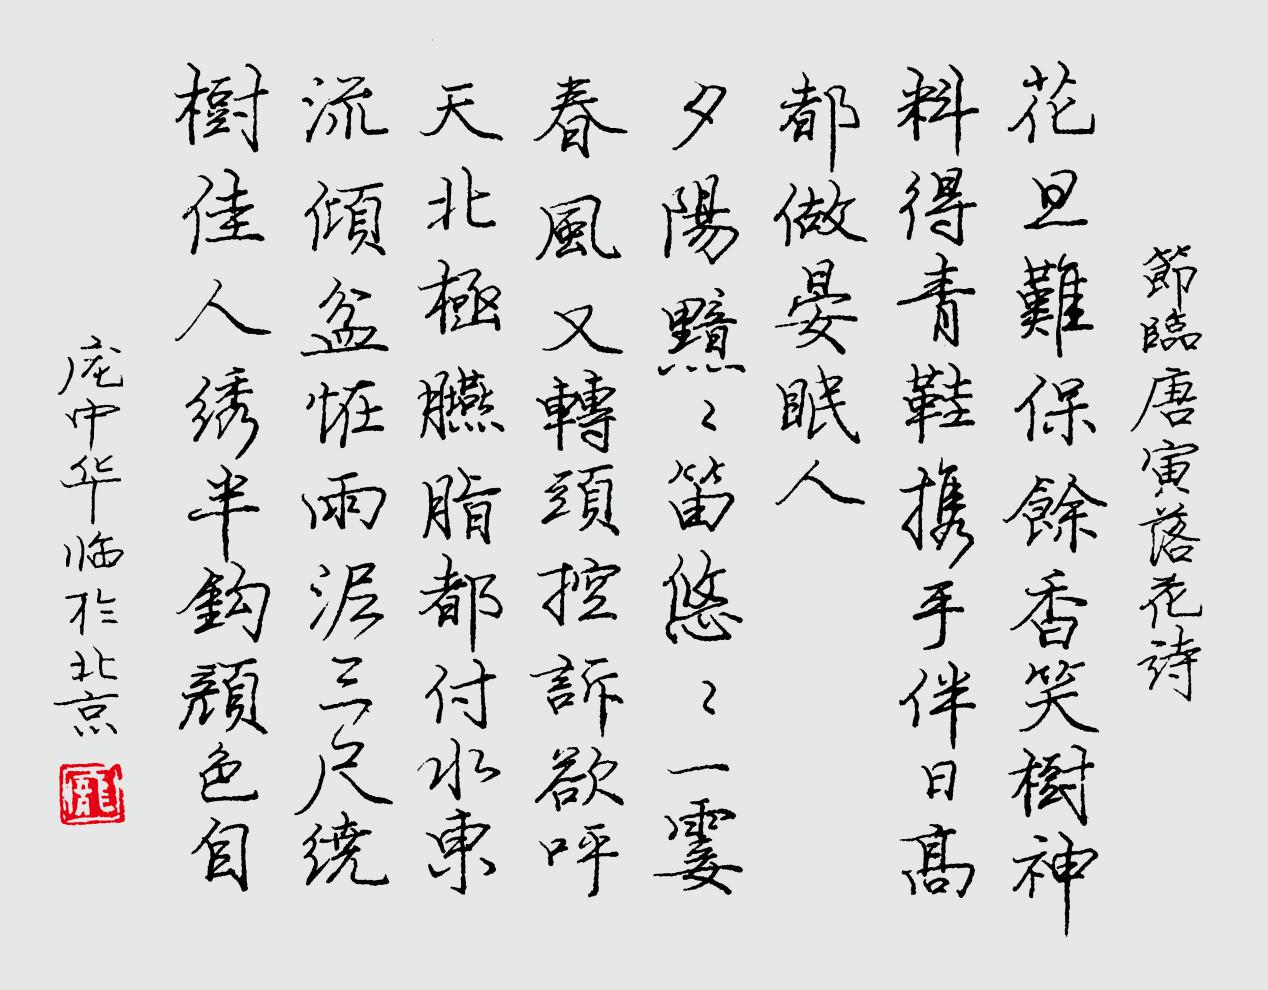 節臨唐寅落花詩
花旦難保餘香笑樹神
料得青鞋携手伴日高
都做晏眠人
夕陽黯〻笛悠〻一霎
春風又轉頭控訴欲呼
天北極臙脂都付水東
流傾盆恠雨泥三尺繞
樹佳人綉半鈎顏色自
庞中华临於北京
龐